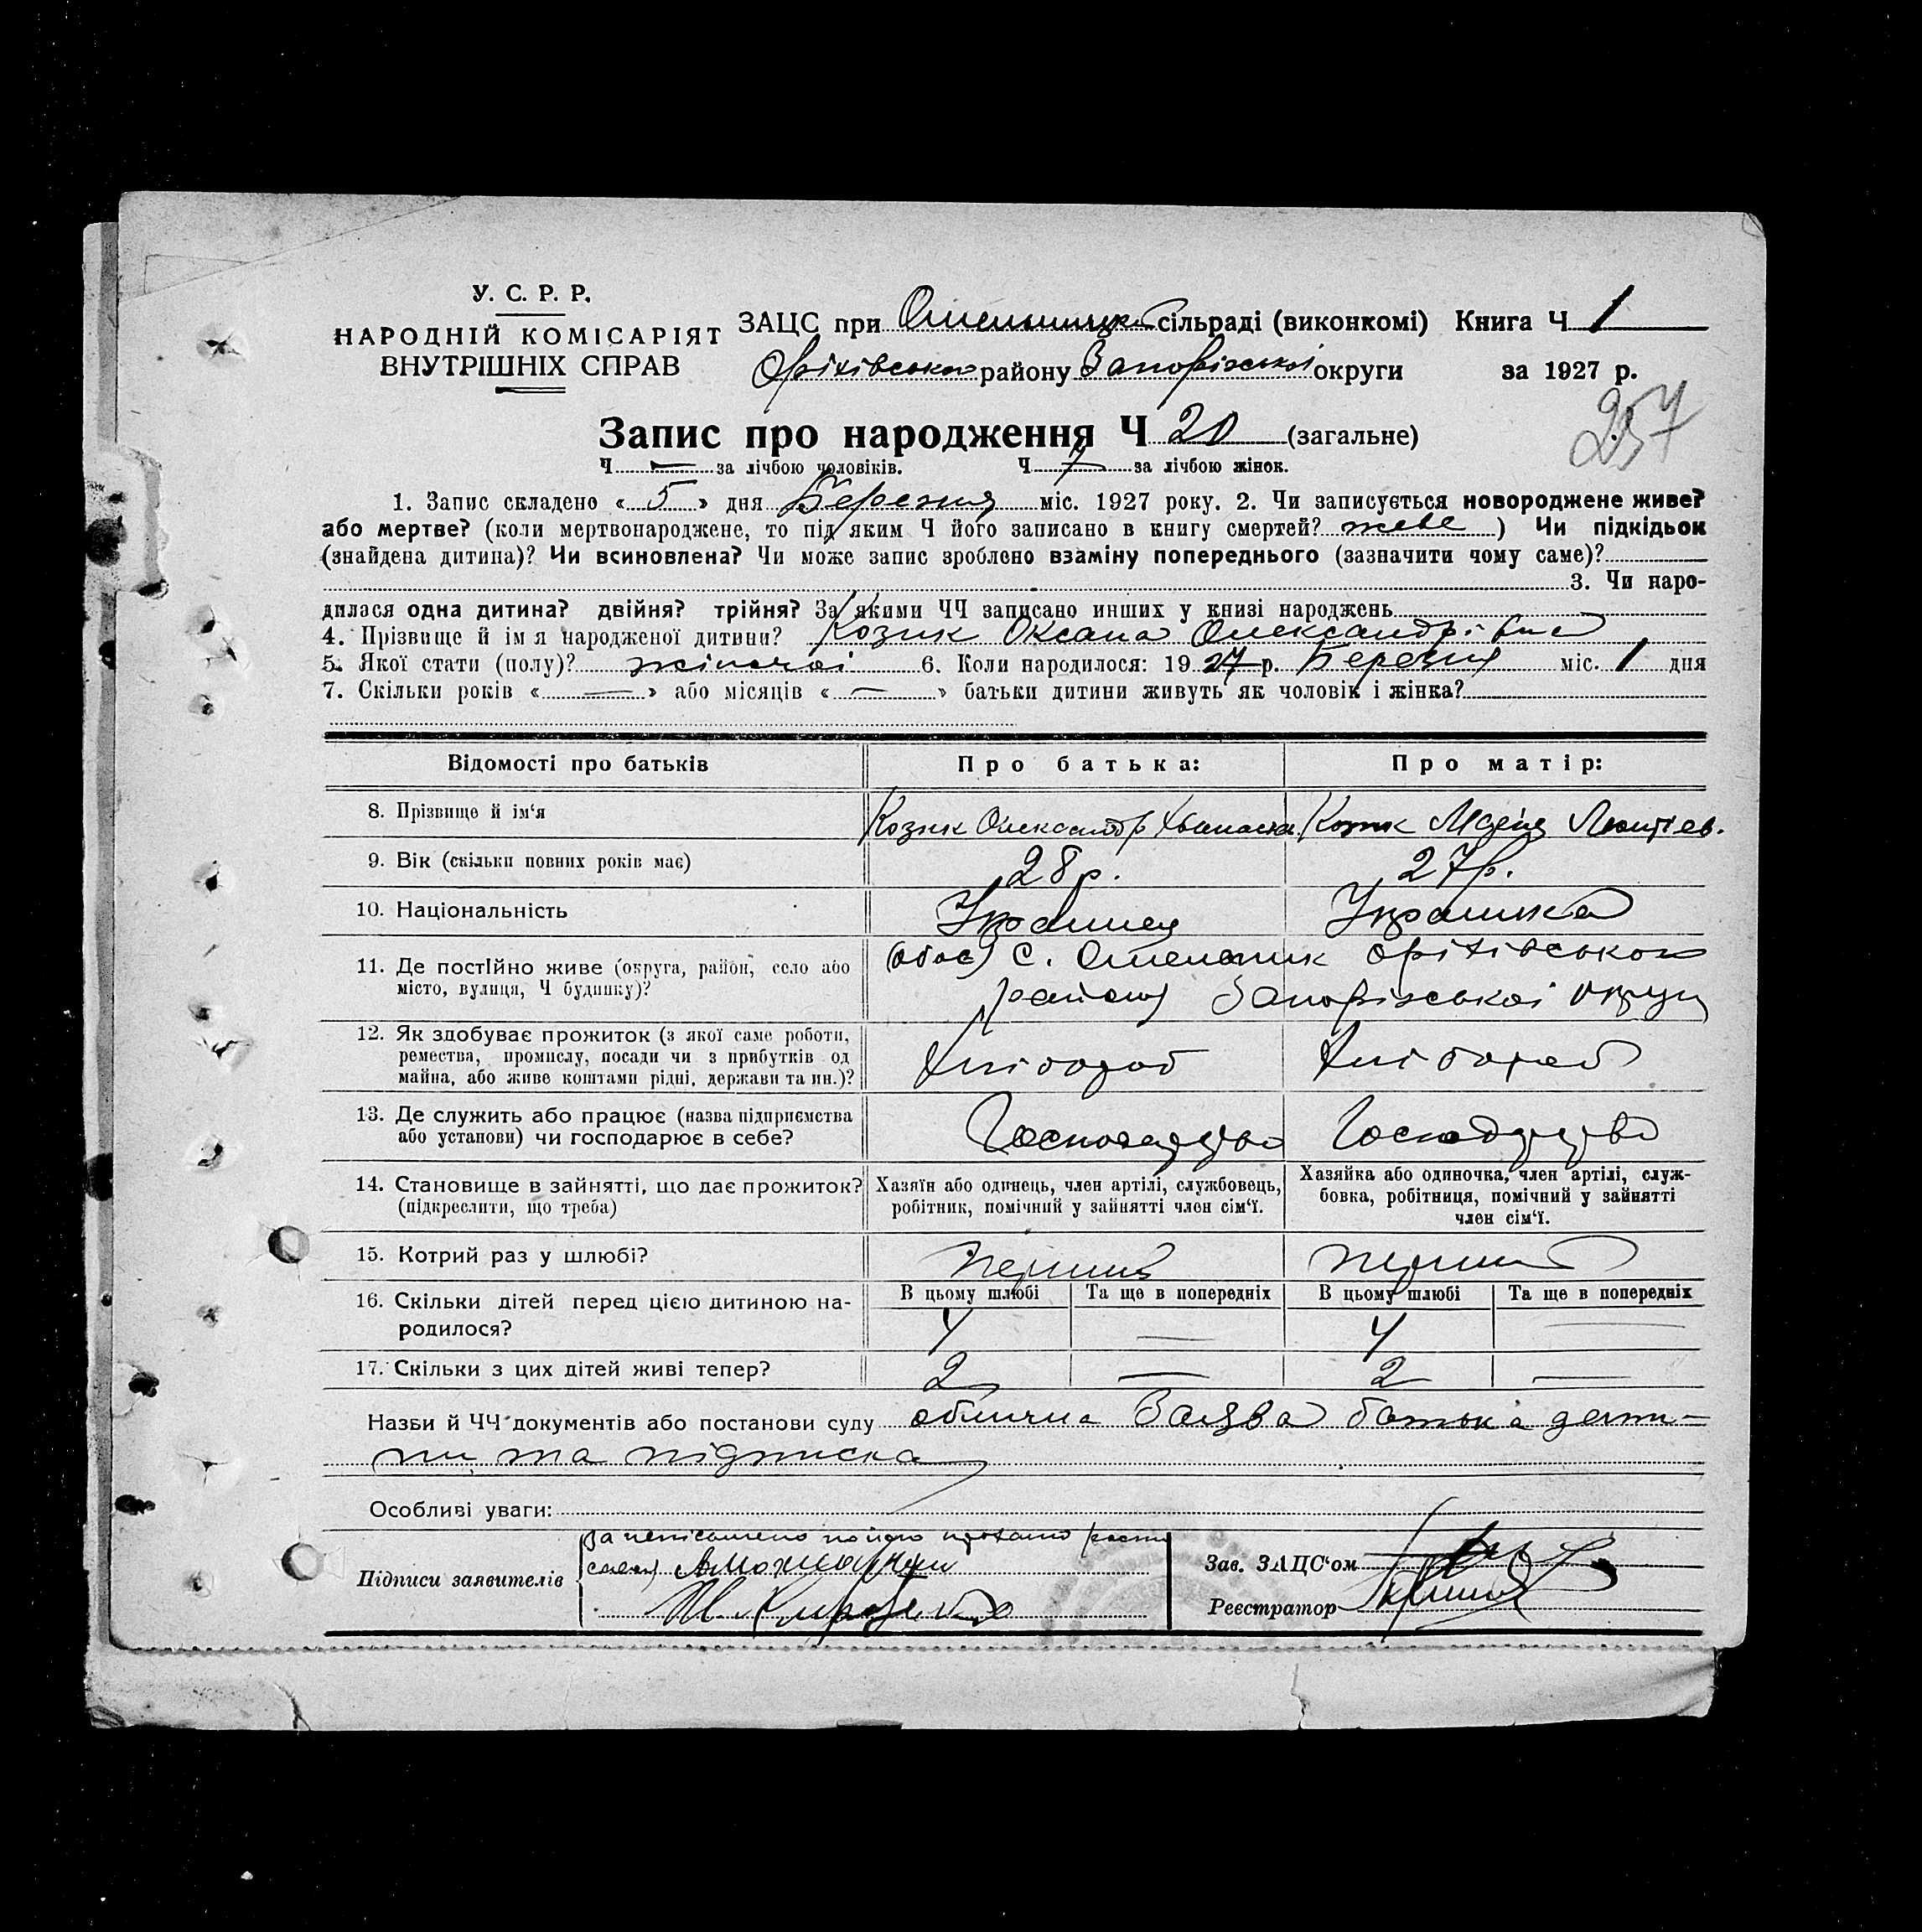 У. С. Р. Р.
НАРОДНІЙ КОМІСАРІЯТ
ВНУТРІШНІХ СПРАВ
ЗАЦС при Омельницкі сільраді (виконкомі) Книга Ч 1
Оріхівського району Запорізської округи за 1927 р.
257
Запис про народження Ч 20 (загальне)
Ч — за лічбою чоловіків. Ч 7 за лічбою жінок.
1. Запис складено « 5 » дня Березня міс. 1927 року. 2. Чи записується новороджене живе?
або мертве? (коли мертвонароджене, то під яким Ч його записано в книгу смертей? живе ) Чи підкідьок
(знайдена дитина)? Чи всиновлена? Чи може запис зроблено взаміну попереднього (зазначити чому саме)?
3. Чи наро-
дилася одна дитина? двійня? трійня? За якими ЧЧ записано инших у книзі народжень
4. Прізвище й ім я народженої дитини? Козик Оксана Олександрівна
5. Якої стати (полу)? жіночої 6. Коли народилося: 1927 р. Березня міс. 1 дня
7. Скільки років « — » або місяців « — » батьки дитини живуть як чоловік і жінка?
Відомості про батьків Про батька: Про матір:
8. Прізвище й ім‘я Козик Олександр Хванасов. Козик Марія Леонтіев.
9. Вік (скільки повних років має) 28 р. 27 р.
10. Національність Українец Українка
11. Де постІйно живе (округа, район, село або (обоє) С. Омельник Оріхівського
місто, вулиця, Ч будинку)? району Запорізської округи
12. Як здобуває прожиток (з якої саме роботи,
ремества, промислу, посади чи з прибутків од Хлібороб Хлібороб
майна, або живе коштами рідні, держави та ин.)?
13. Де служить або працює (назва підприємства
або установи) чи господарює в себе? Господарство Господарство
14. Становище в зайнятті, що дає прожиток?
(підкреслити, що треба)
Хазяїн або одинець, член артілі, службовець,
робітник, помічний у зайнятті член сім‘ї.
Хазяйка або одиночка, член артілі, служ-
бовка, робітниця, помічний у зайнятті
член сім‘ї.
15. Котрий раз у шлюбі? перший перший
16. Скільки дітей перед цією дитиною на-
родилося?
В цьому шлюбі Та ще в попередніх В цьому шлюбі Та ще в попередніх
4 — 4 —
17. Скільки з цих дітей живі тепер? 2 — 2 —
Назви й ЧЧ документів або постанови суду обlична Заява батька дити-
ни та підписка
Особливі уваги:
Підписи заявителів
за
Зав. ЗАЦС‘ом
Реєстратор